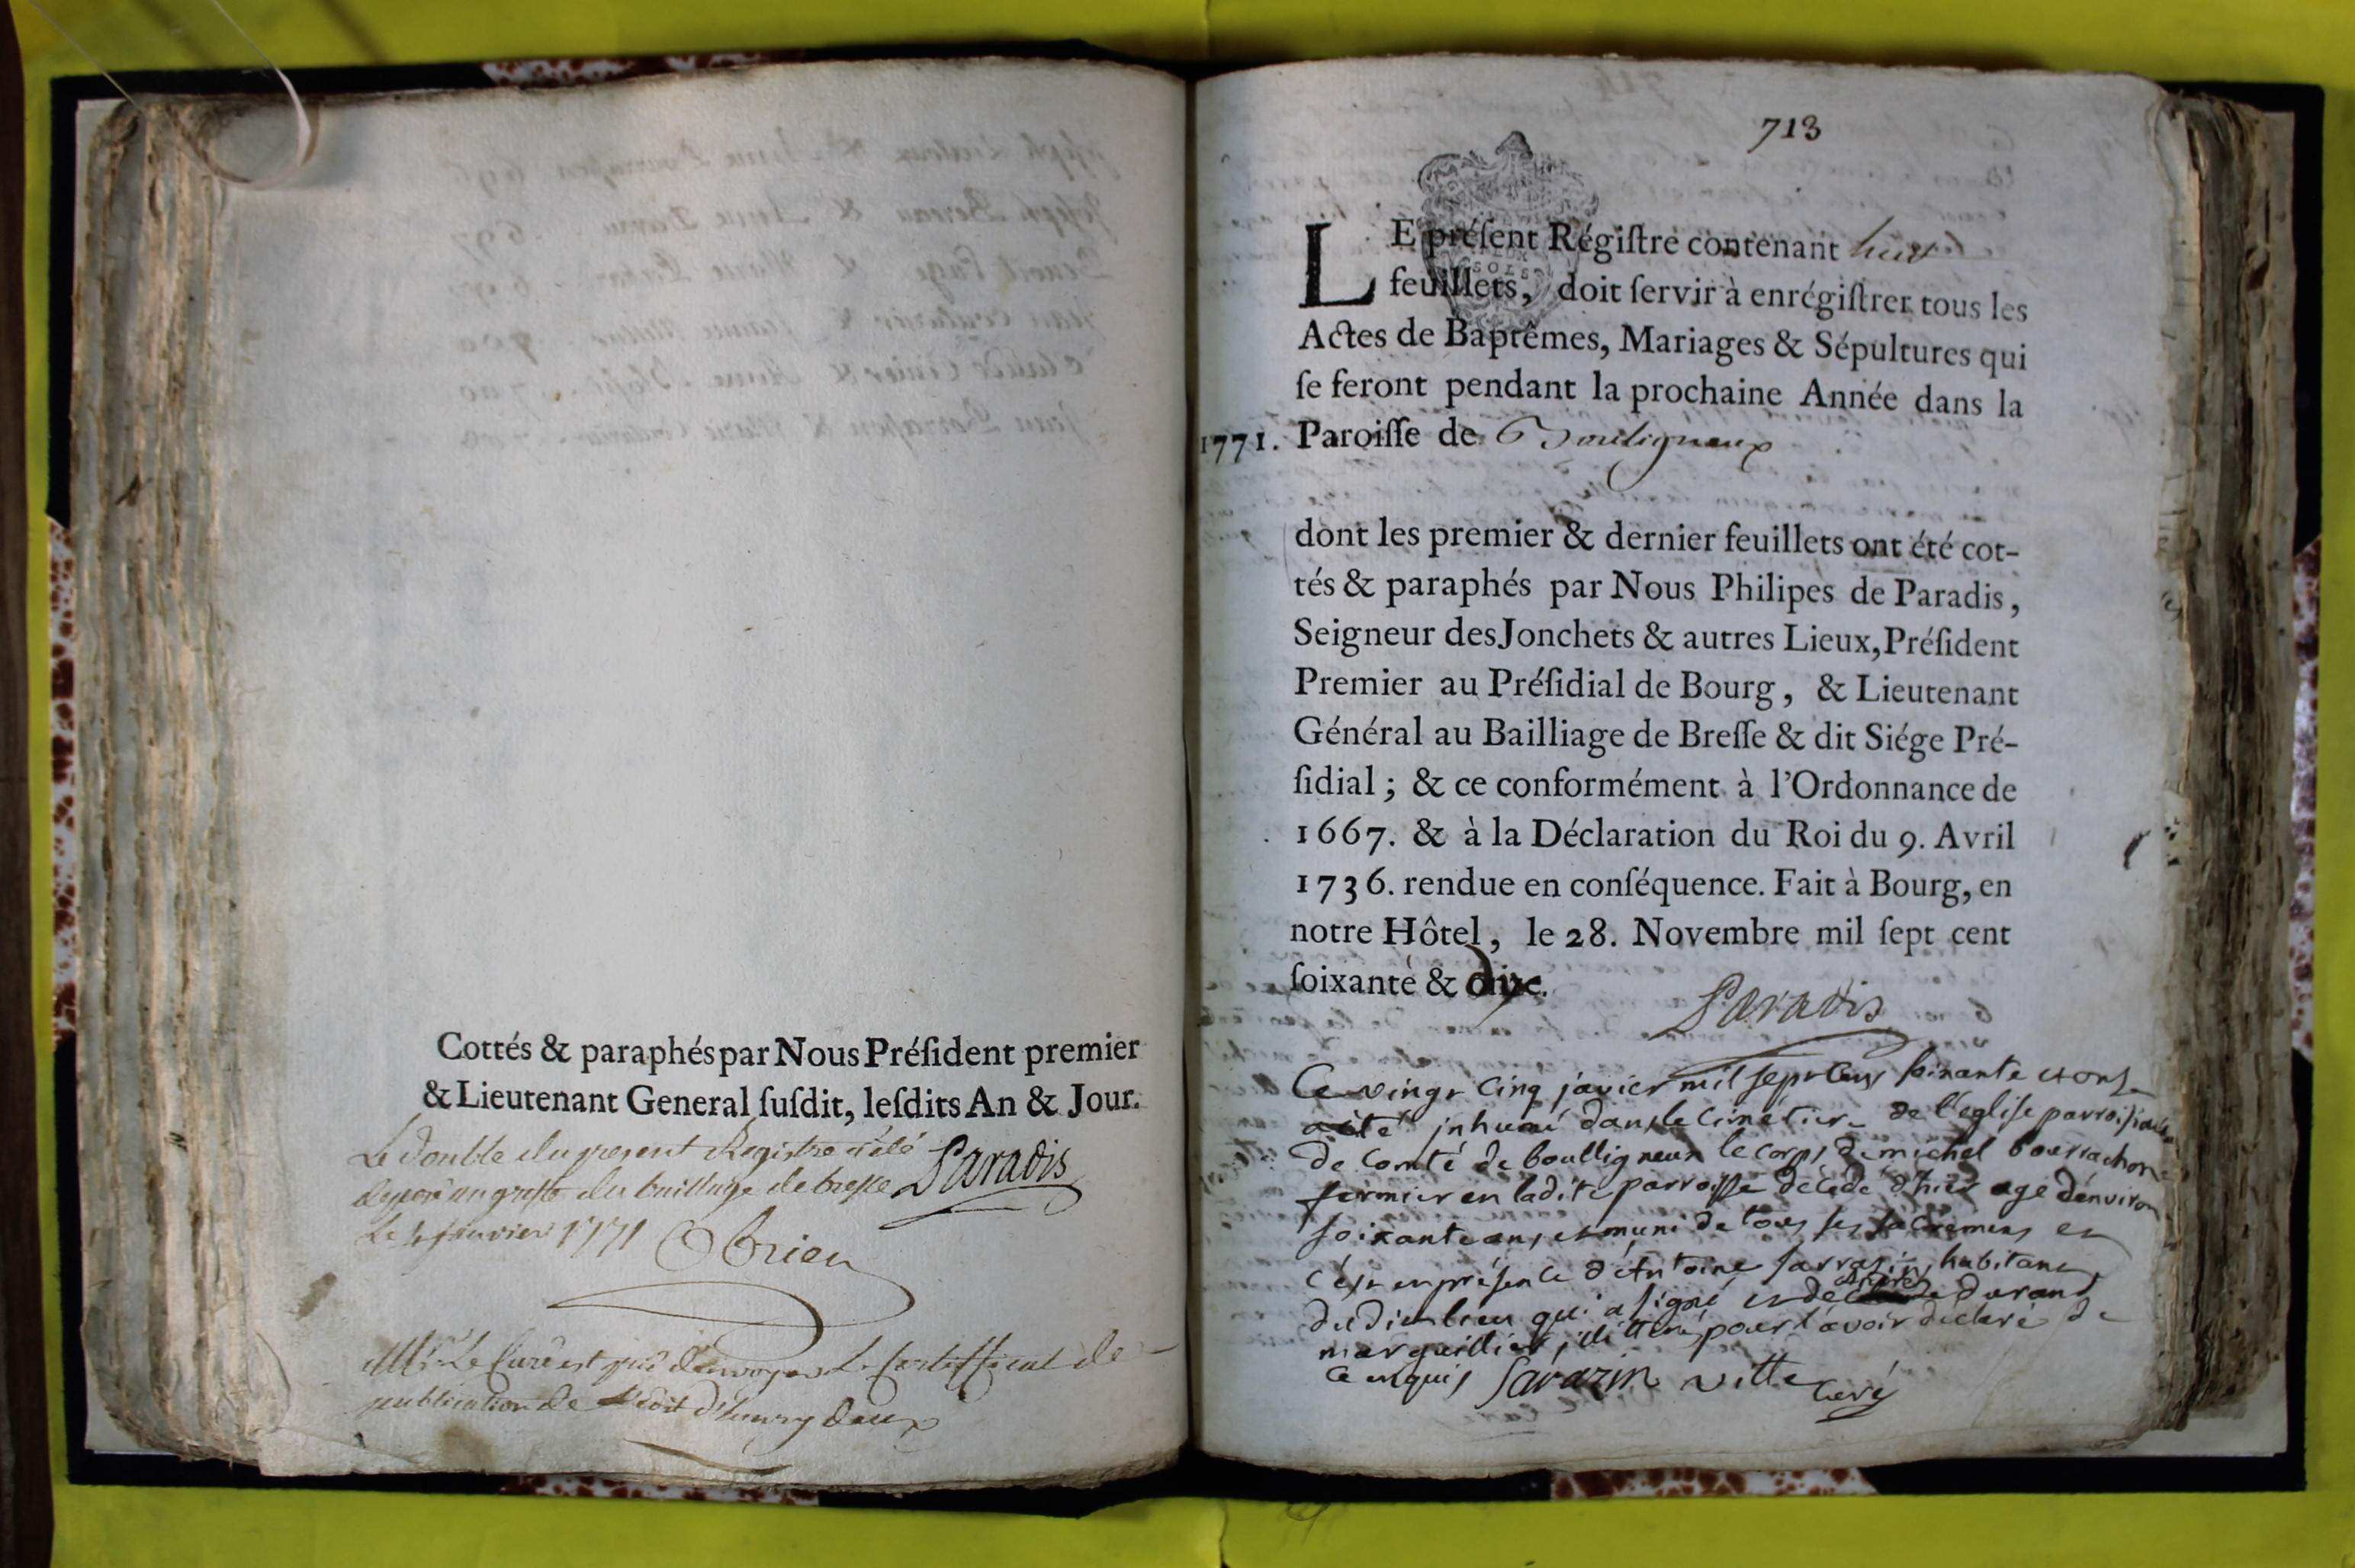 Cottés & paraphés par Nous Préſident premier
& Lieutenant General ſuſdit, leſdits An & Jour.
Le double du present Registre a été
deposé au greffe du bailliage de bresse Paradis
Le janvier 1771
Mr. Le Curé est prié d'envoyer Le Certifficat de
publication de L'edit d'henry deux
713
LE préſent Régiſtre contenant huit
feuillets, doit ſervir à enrégiſtrer tous les
Actes de Baptêmes, Mariages & Sépultures qui
ſe feront pendant la prochaine Année dans la
1771. Paroiſſe de Bouligneux
dont les premier & dernier feuillets ont été cot-
tés & paraphés par Nous Philipes de Paradis,
Seigneur des Jonchets & autres Lieux, Préſident
Premier au Préſidial de Bourg, & Lieutenant
Général au Bailliage de Breſſe & dit Siége Pré-
ſidial; & ce conformément à l'Ordonnance de
1667. & à la Déclaration du Roi du 9. Avril
1736. rendue en conſéquence. Fait à Bourg, en
notre Hôtel, le 28. Novembre mil ſept cent
ſoixante & dix.
Paradis
Ce vingt cinq javier mil sept cens soixante et onze
a été inhumé dans le cimetiere de l'eglise parroissialle
de comté de boulligneux le corps de michel bourrachon
fermier en ladite parroisse décédé d'hier agé d'environ
soixante ans et muni de tous ses sacremens et
c'est en présence d'Antoine sarrasin habitant
dudit lieu qui a signé et de durand
marguillier, illitéré pour l'avoir déclaré de
ce enquis Sarazin vitte curé